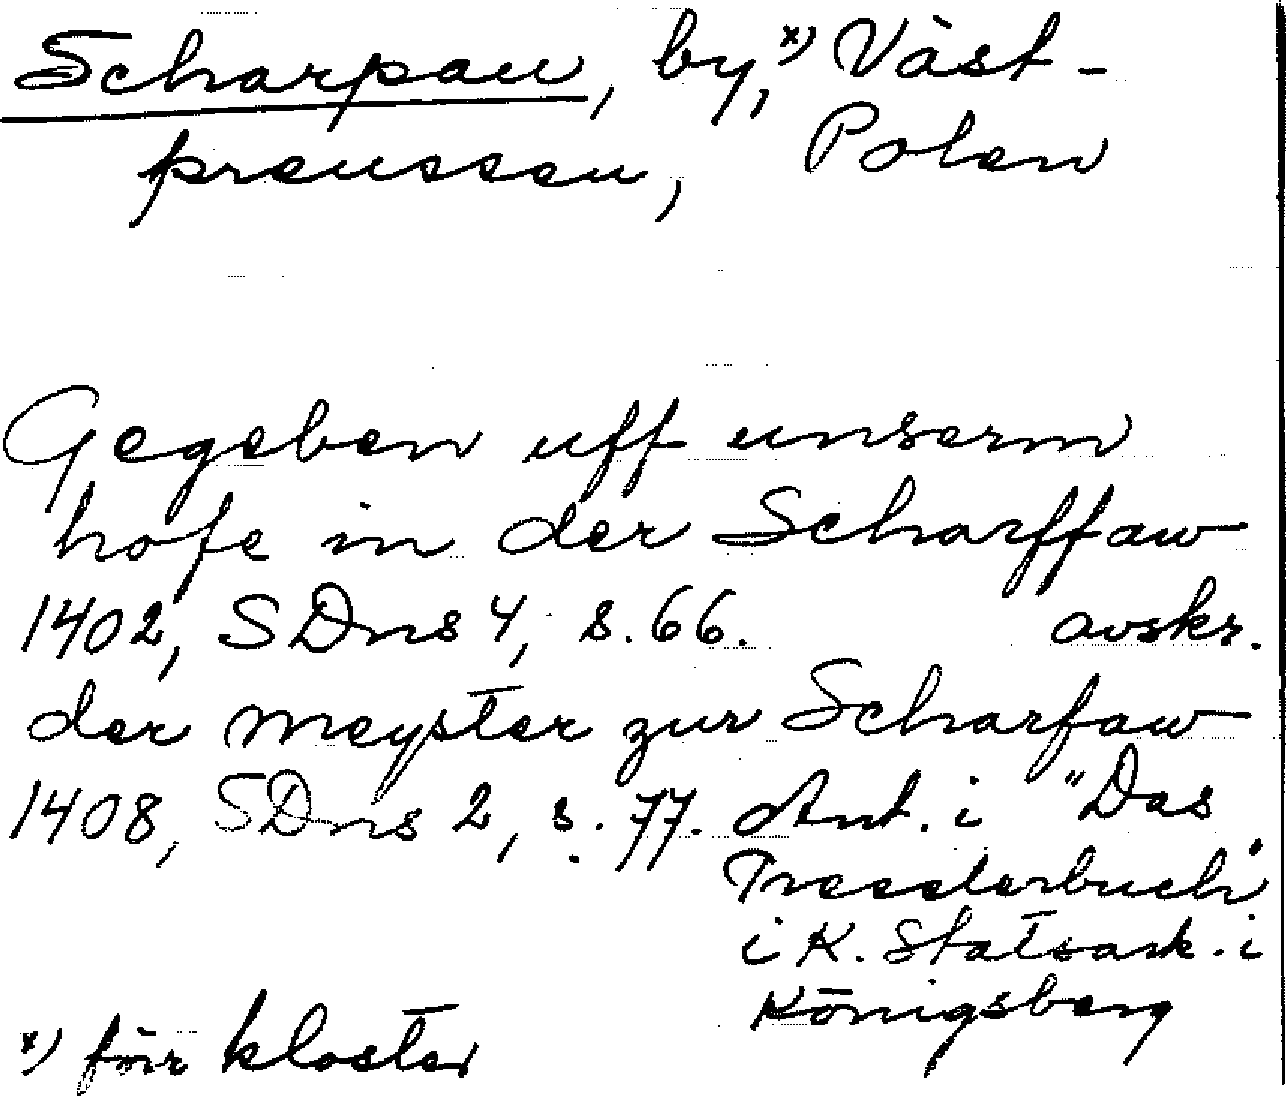 Scharpau, by,ˣ⁾ Väst-
preussen, Polen
Gegeben uff unserm
hofe in der Scharffaw
1402, SDns 4, s. 66. avskr.
der meyster zur Scharfaw
1408, SDns 2, s. 77. Ant. i "Das
Tresslerbuch"
i K. Statsark. i
Königsberg
x) förr kloster